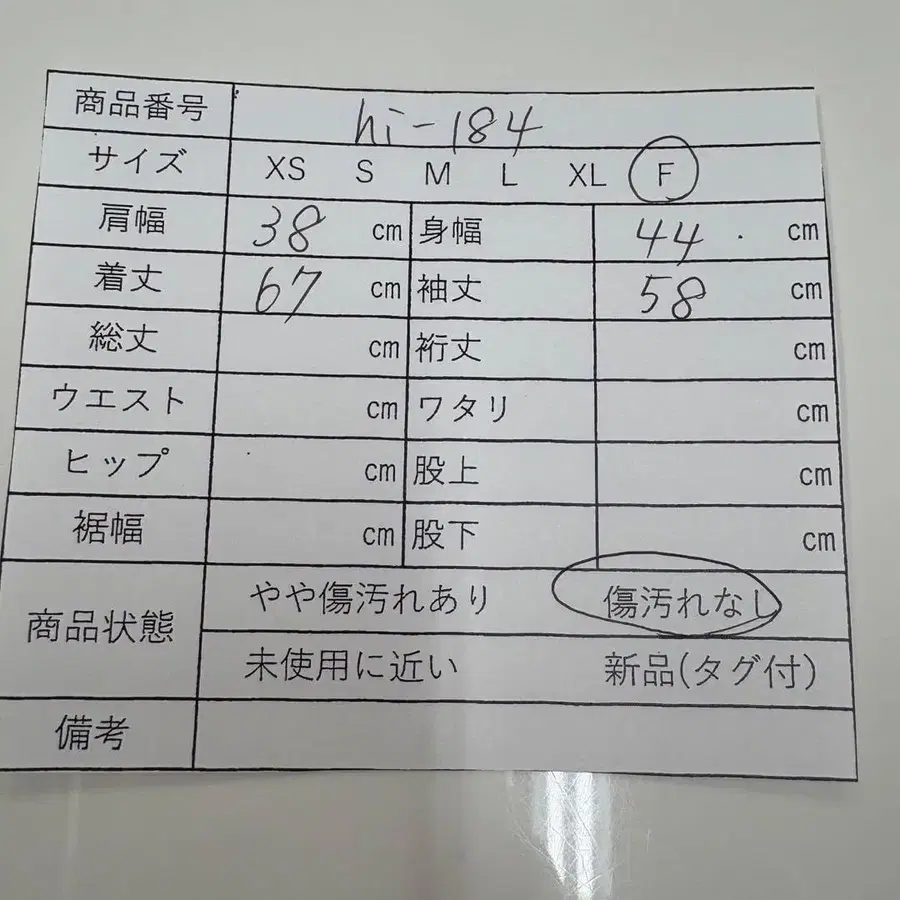 商品番号 hi-184
サイズ XS S M L XL F
肩幅 38 cm 身幅 44 cm
着丈 67 cm 袖丈 58 cm
総丈 cm 裄丈 cm
ウエスト cm ワタリ cm
ヒップ cm 股上 cm
裾幅 cm 股下 cm
商品状態 やや傷汚れあり 傷汚れなし
未使用に近い 新品(タグ付)
備考